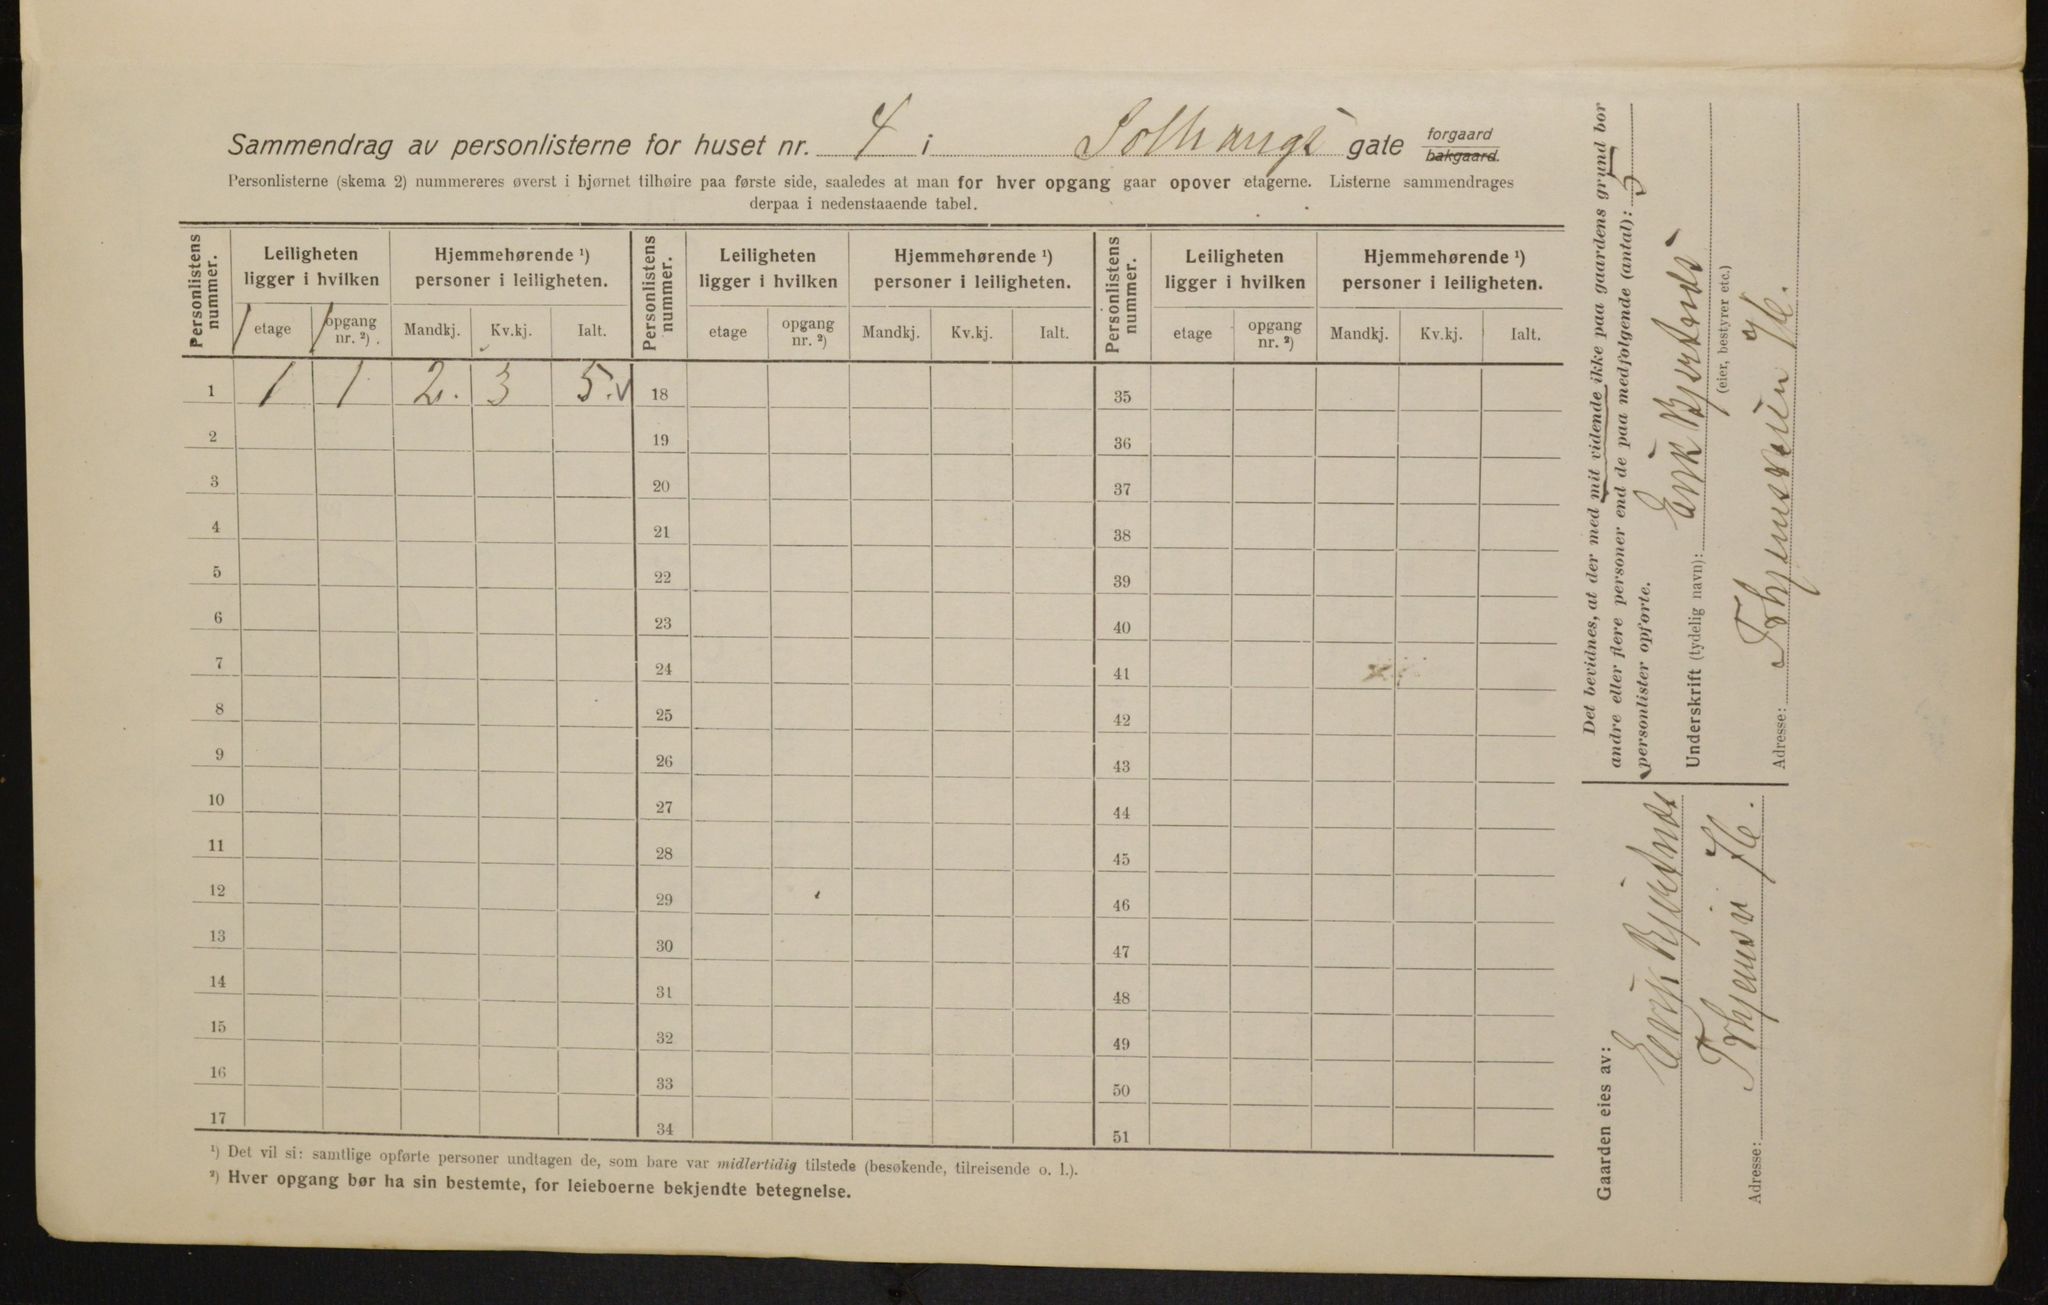 Sammendrag av personlisterne for huset nr. 4 i Solhaugs gate forgaard bakgaard.
Personlisterne (skema 2) nummereres øverst i hjørnet tilhøire paa første side, saaledes at man for hver opgang gaar opover etagerne. Listerne sammendrages
derpaa i nedenstaaende tabel.
Personlistens nummer. Leiligheten ligger i hvilken Hjemmehørende ¹) personer i leiligheten. Personlistens nummer. Leiligheten ligger i hvilken Hjemmehørende ¹) personer i leiligheten. Personlistens nummer. Leiligheten ligger i hvilken Hjemmehørende ¹) personer i leiligheten.
etage opgang nr. ²). Mandkj. Kv.kj. Ialt. etage opgang nr. ²) Mandkj. Kv.kj. Ialt. etage opgang nr. ²) Mandkj. Kv.kj. Ialt.
1 1 1 2. 3 5. v 18 35
2 19 36
3 20 37
4 21 38
5 22 39
6 23 40
7 24 41
8 25 42
9 26 43
10 27 44
11 28 45
12 29 46
13 30 47
14 31 48
15 32 49
16 33 50
17 34 51
¹) Det vil si: samtlige opførte personer undtagen de, som bare var midlertidig tilstede (besøkende, tilreisende o. l.).
²) Hver opgang bør ha sin bestemte, for leieboerne bekjendte betegnelse.
Det bevidnes, at der med mit vidende ikke paa gaardens grund bor
andre eller flere personer end de paa medfølgende (antal): 5
personlister opførte.
Underskrift (tydelig navn): Erik Bjertnæs
(eier, bestyrer etc.)
Adresse:
Gaarden eies av:
Adresse: